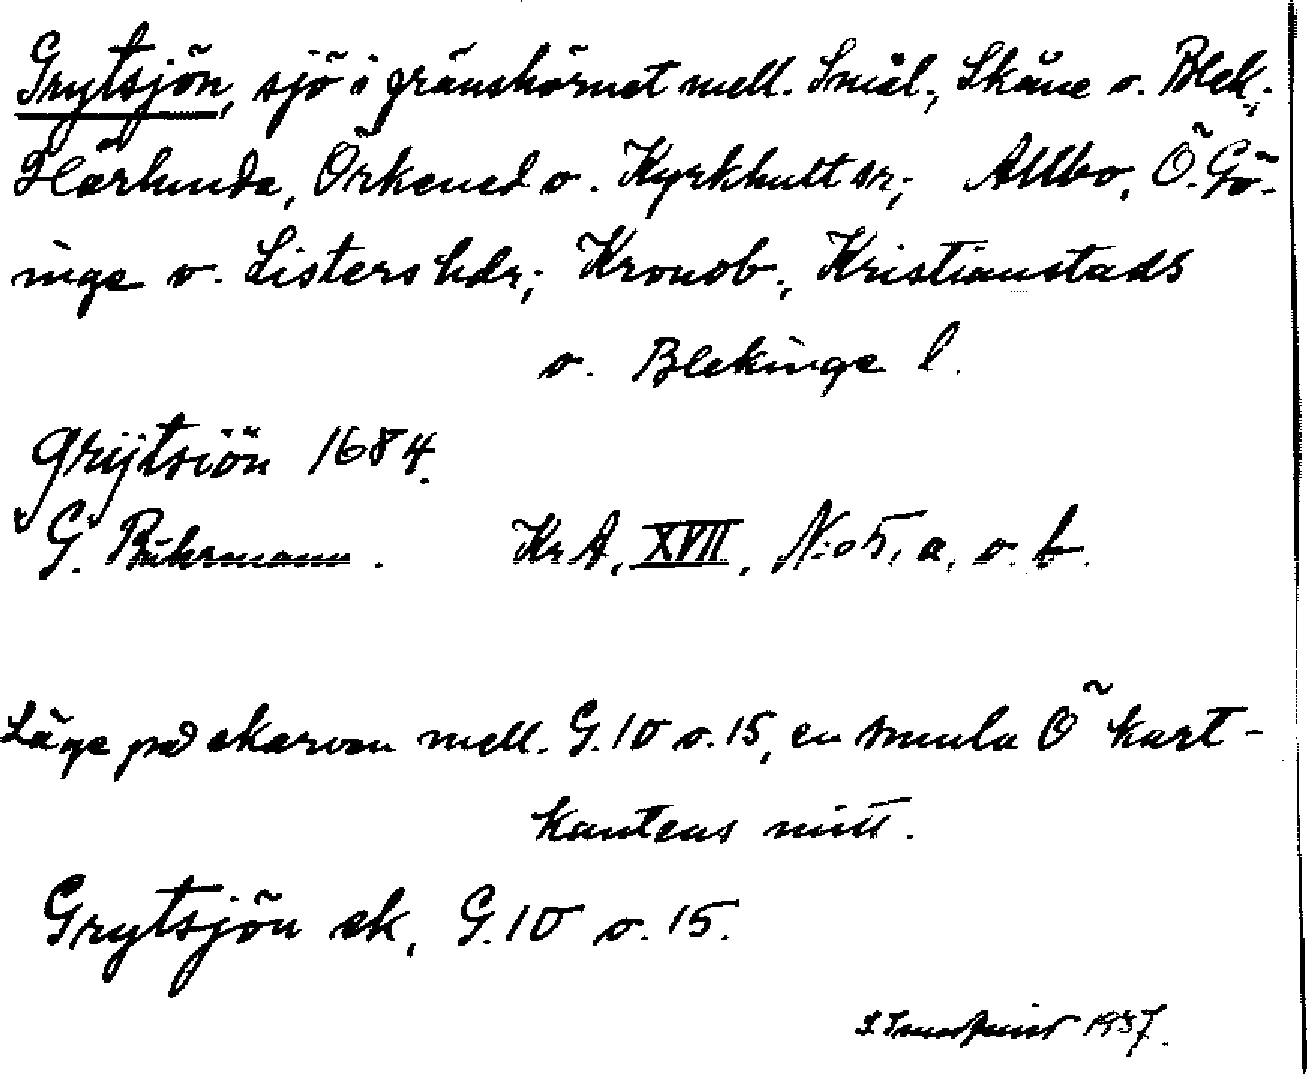 Grytsjön, sjö i gränshörnet mell. Smål., Skåne o. Blek.
Härlunda, Örkened o. Kyrkhult snr; Allbo, Ö. Gö-
inge o. Listers hdr; Kronob., Kristianstads
o. Blekinge l.
Grijtsiön 1684.
G. Buhrmann. KrA, XVII, N:o 5, a. o. b.
Läge på skarven mell. G. 10 o. 15, en smula Ö kart-
kantens mitt.
Grytsjön ek, G. 10 o. 15.
1937.